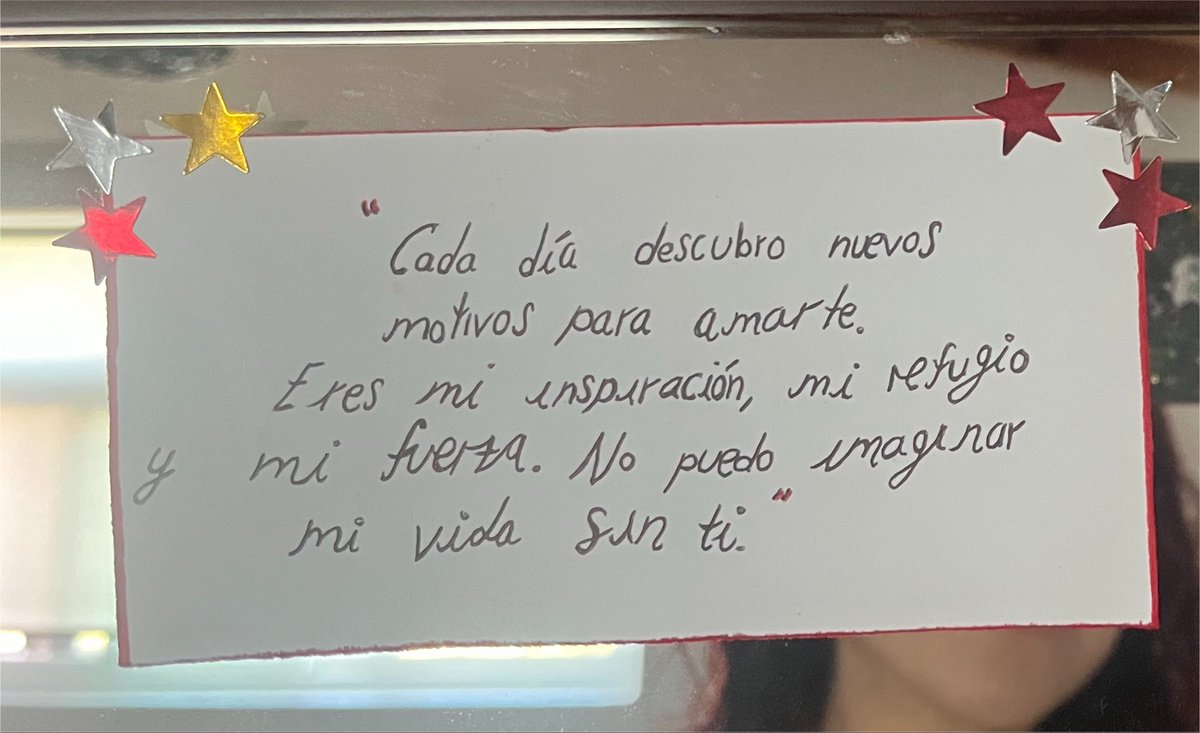 "Cada día descubro nuevos
motivos para amarte.
Eres mi inspiración, mi refugio
y mi fuerza. No puedo imaginar
mi vida sin ti."